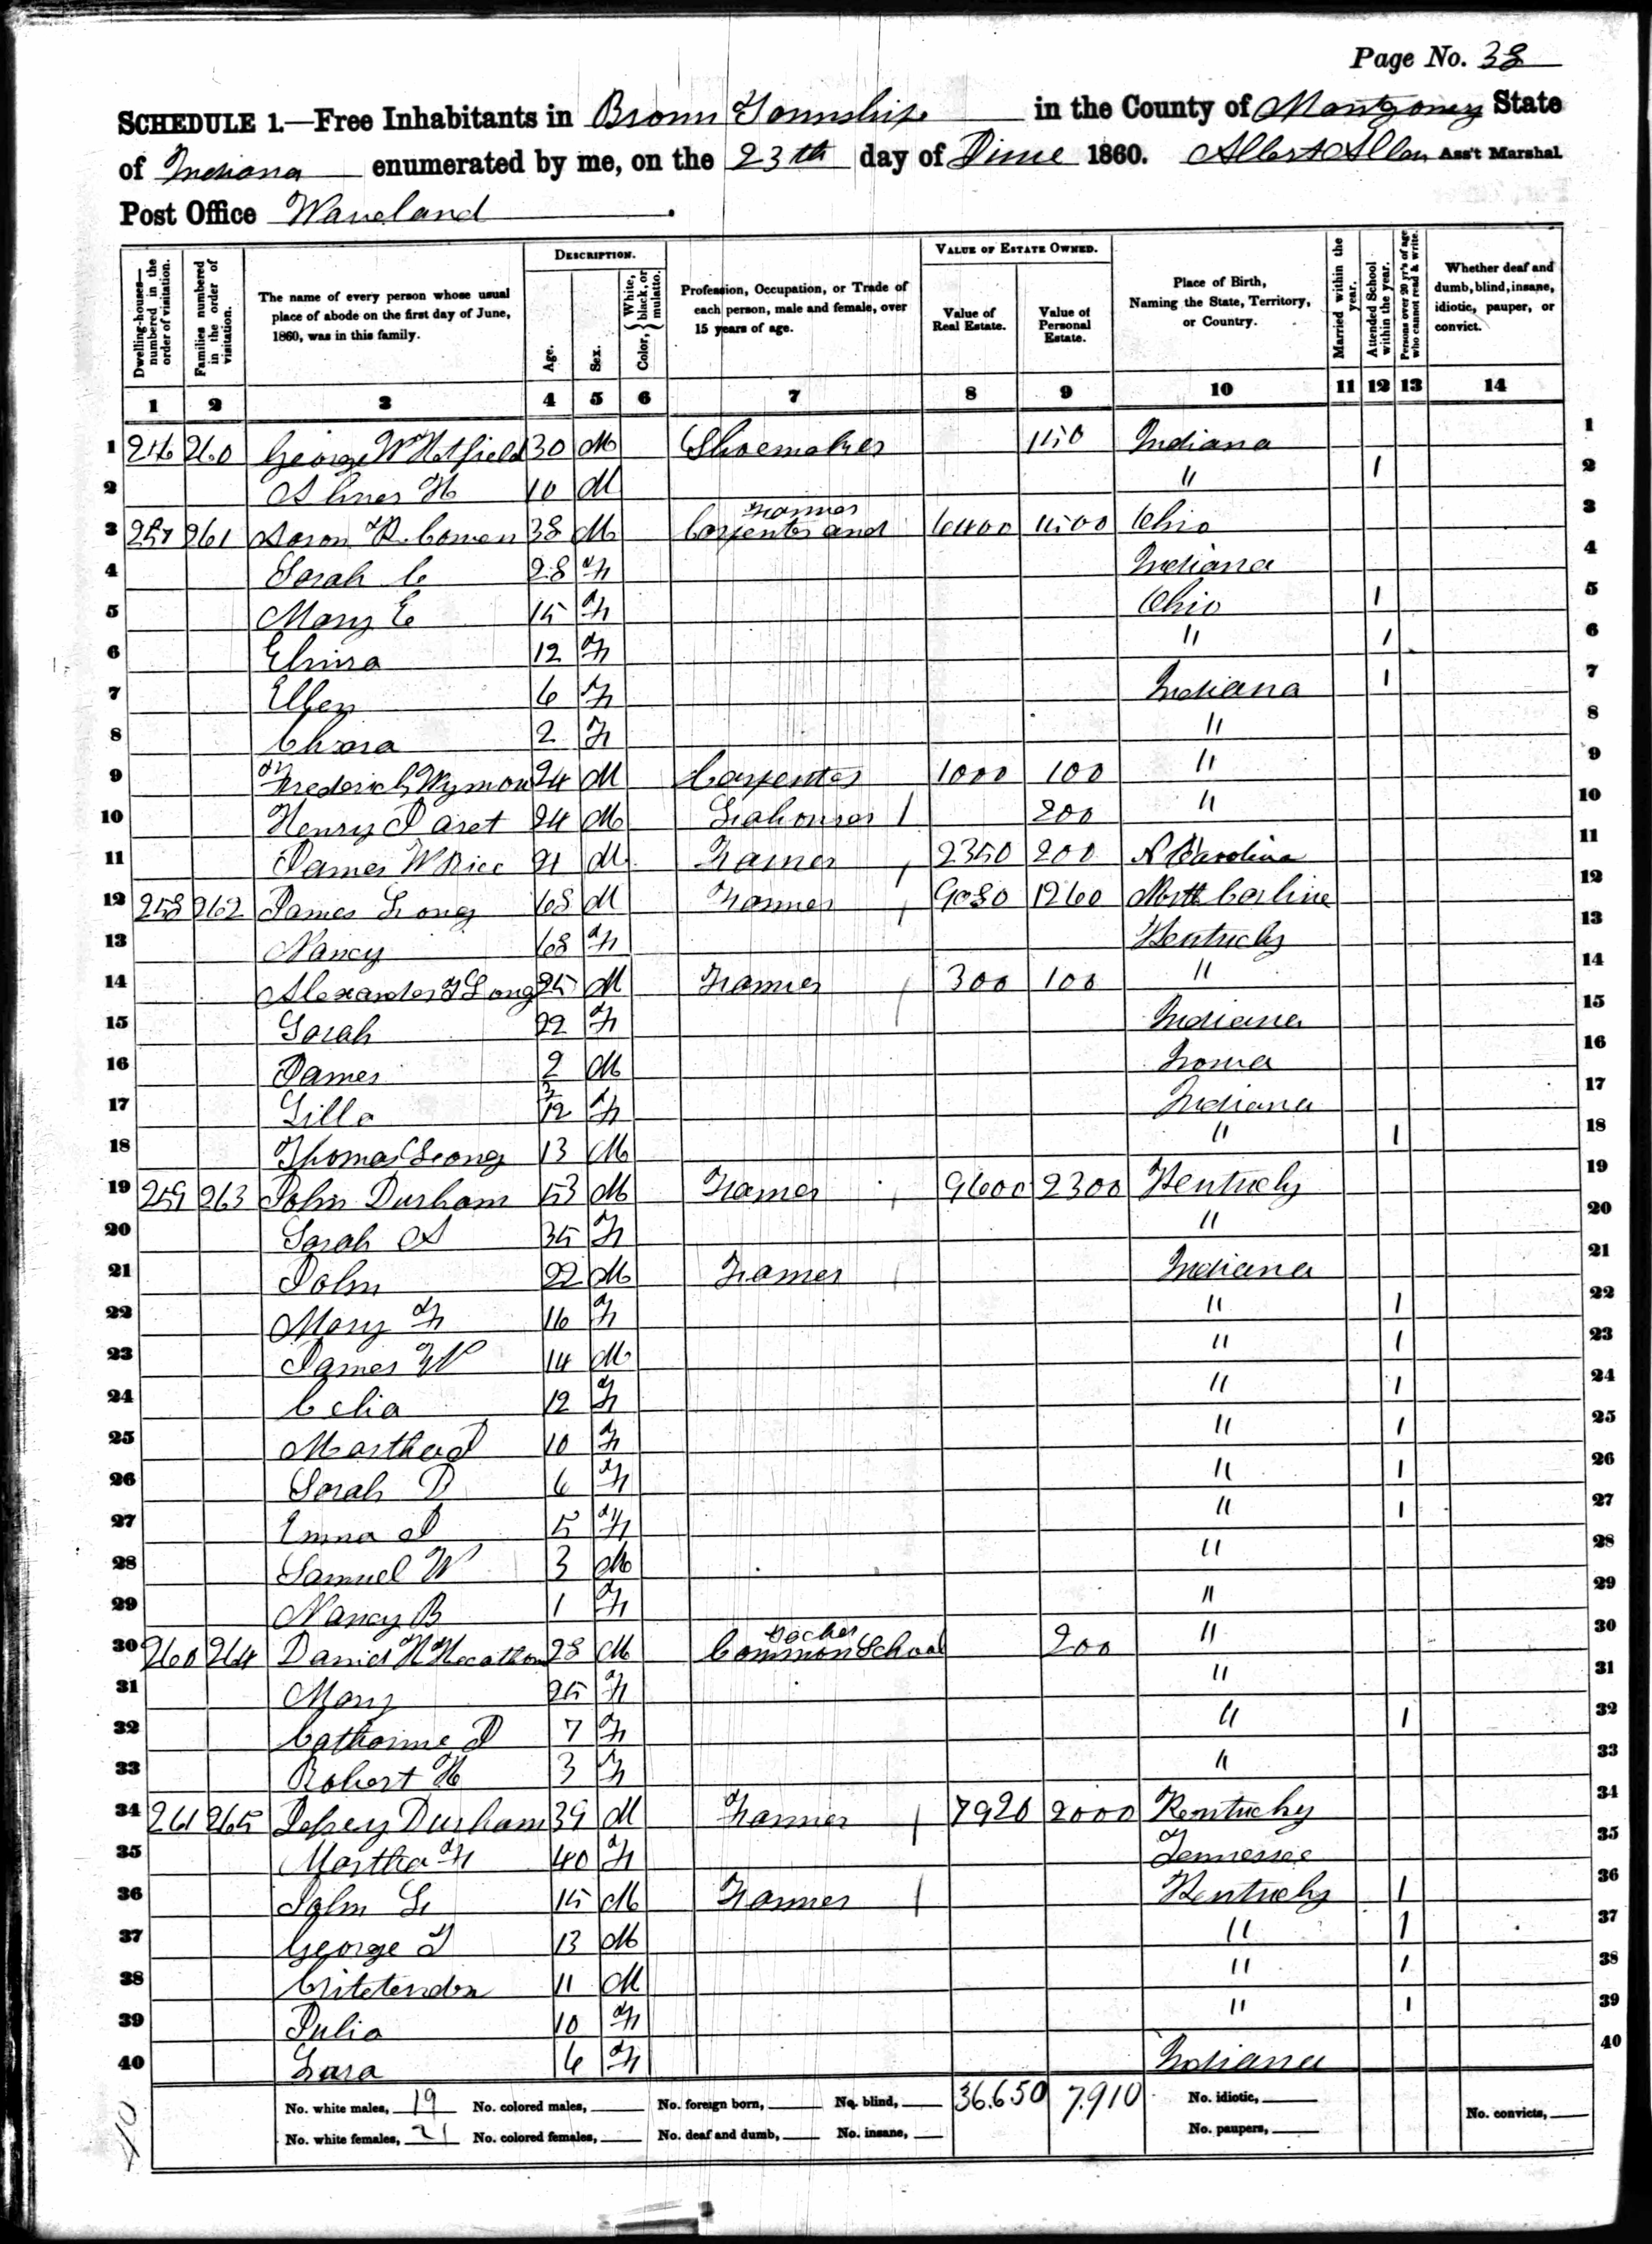 Page No. 38
SCHEDULE 1.—Free Inhabitants in Brown Township in the County of Montgomery State
of Indiana enumerated by me, on the 23th day of June 1860. Albert Allen Ass't Marshal
Post Office Waveland.
Dwelling-houses—numbered in the order of visitation. Families numbered in the order of visitation. The name of every person whose usual place of abode on the first day of June, 1860, was in this family. DESCRIPTION. Age. Sex. Color, { White, black, or mulatto. Profession, Occupation, or Trade of each person, male and female, over 15 years of age. VALUE OF ESTATE OWNED. Value of Real Estate. Value of Personal Estate. Place of Birth, Naming the State, Territory, or Country. Married within the year. Attended School within the year. Persons over 20 yr's of age who cannot read & write. Whether deaf and dumb, blind, insane, idiotic, pauper, or convict.
1 2 3 4 5 6 7 8 9 10 11 12 13 14
1 260 George W Hatfield 30 M Shoemaker 150 Indiana 1
2 Abner H 10 M " 1 2
3 257 261 Aaron R. Coman 38 M Farmer Carpenter and 6400 1500 Ohio 3
4 Sarah C 28 F Indiana 4
5 Mary E 15 F Ohio 1 5
6 Elvira 12 F " 1 6
7 Ellen 6 F Indiana 1 7
8 2 F " 8
9 Frederick Wymon 24 M Carpenter 1000 100 " 9
10 Henry 24 M 200 " 10
11 James W Rice 21 M Farmer 2350 200 N Carolina 11
12 258 262 James Long 68 M Farmer 9080 1260 North Carline 12
13 Nancy 68 F Kentucky 13
14 Alexander Long 25 M Farmer 300 100 " 14
15 Sarah 22 F Indiana 15
16 James 2 M Iowa 16
17 Lilla 3/12 F Indiana 17
18 Thomas Long 13 M " 1 18
19 259 263 John Durham 53 M Farmer 9600 2300 Kentucky 19
20 Sarah A 35 F " 20
21 John 22 M Farmer Indiana 21
22 Mary F 16 F " 1 22
23 James W 14 M " 1 23
24 Celia 12 F " 1 24
25 Martha J 10 F " 1 25
26 Sarah D 6 F " 1 26
27 Emma J 5 F " 1 27
28 Samuel W 3 M " 28
29 Nancy B 1 F " 29
30 260 264 David 28 M Teacher Common School 200 " 30
31 Mary 25 F " 31
32 Catharine J 7 F " 1 32
33 Robert H 3 F " 33
34 261 265 Durham 39 M Farmer 7920 2000 Kentucky 34
35 Martha F 40 F Tennessee 35
36 John L 15 M Farmer Kentucky 1 36
37 George T 13 M " 1 37
38 Critetenden 11 M " 1 38
39 Julia 10 F " 1 39
40 Lara 6 F Indiana 40
No. white males, 19 No. colored males, No. foreign born, No. blind, 36.650 7.910 No. idiotic, No. convicts,
No. white females, 21 No. colored females, No. deaf and dumb, No. insane, No. paupers,
40